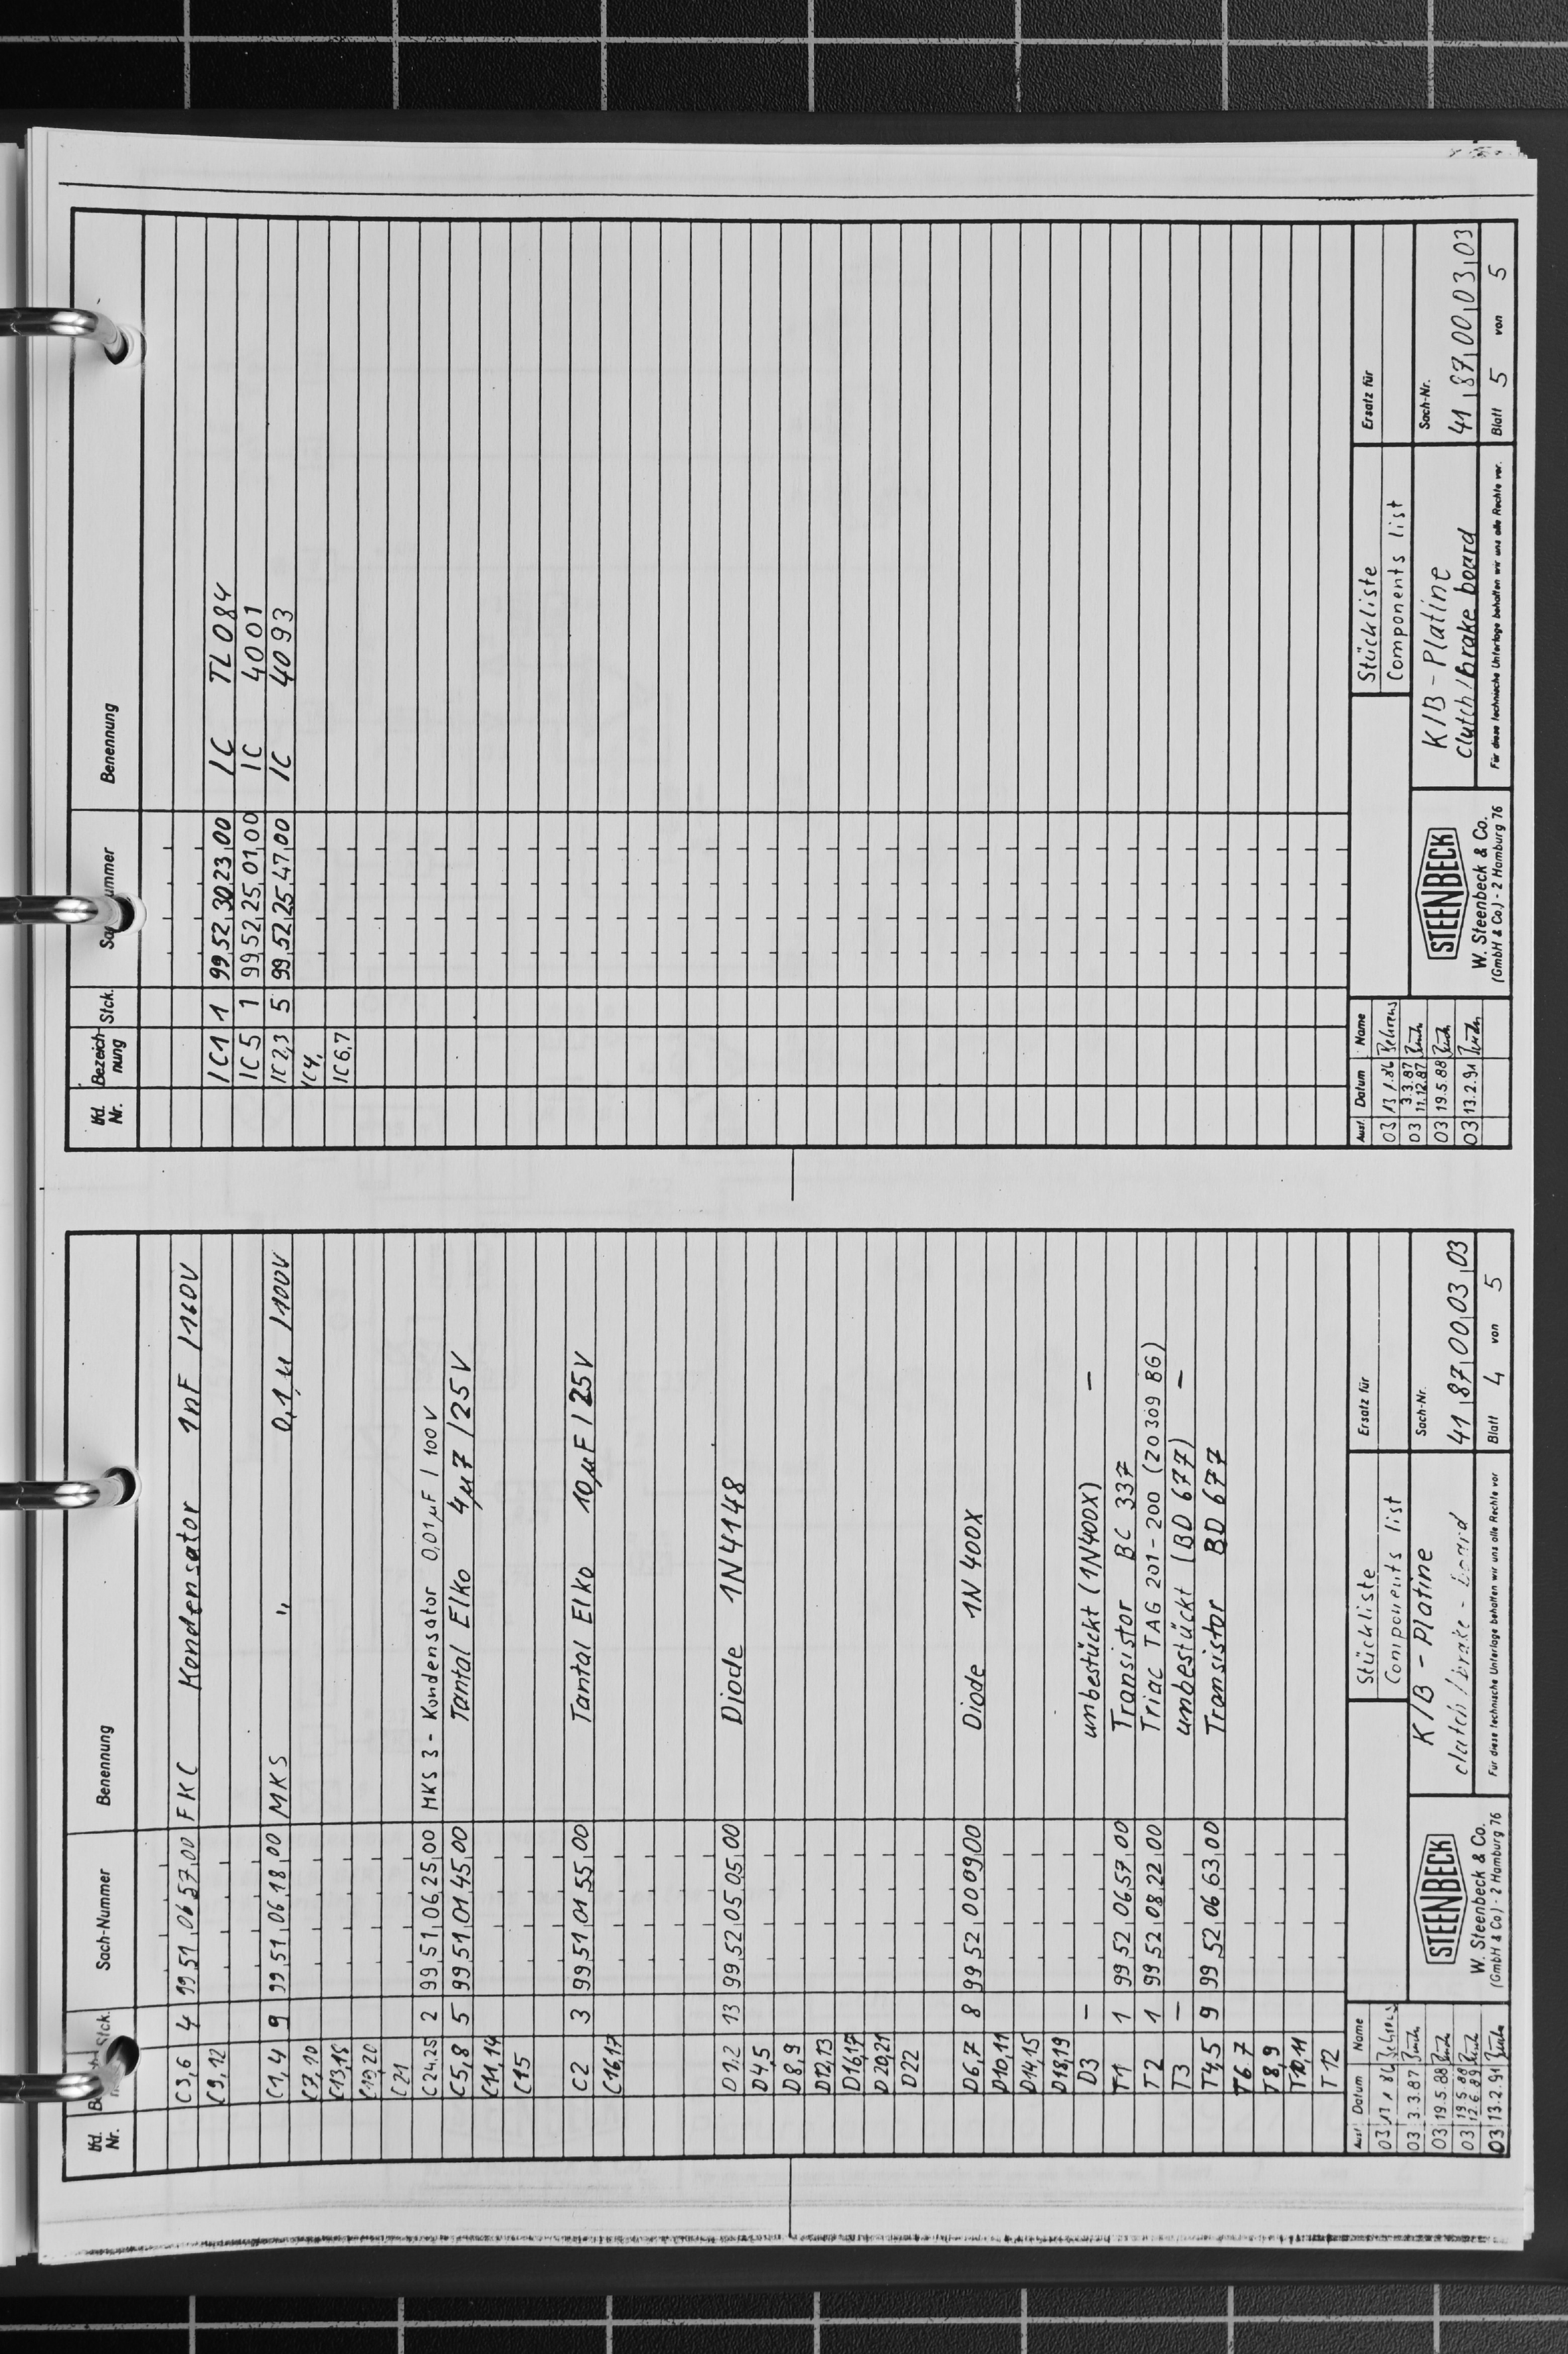 lfd. Nr. Stck. Sach-Nummer Benennung
C3,6 4 99 51 06 57 00 FKC Kondensator 1nF /160V
C9,12
C1,4 9 99 51 06 18 00 MKS " 0,1µ /100V
C7,10
C13,18
C19,20
C21
C24,25 2 99 51 06 25 00 MKS 3 - Kondensator 0,01µF / 100V
C5,8 5 99 51 01 45 00 Tantal Elko 4µ7 /25V
C11,14
C15
C2 3 99 51 01 55 00 Tantal Elko 10µF / 25V
C16,17
D1,2 13 99 52 05 05 00 Diode 1N4148
D4,5
D8,9
D12,13
D16,17
D20,21
D22
D6,7 8 99 52 00 09 00 Diode 1N 400X
D10,11
D14,15
D18,19
D3 – unbestückt (1N400X) –
T1 1 99 52 06 57 00 Transistor BC 337
T2 1 99 52 08 22 00 Triac TAG 201-200 (Z0 309 BG)
T3 – unbestückt (BD 677) –
T4,5 9 99 52 06 63 00 Transistor BD 677
T6,7
T8,9
T10,11
T12
Ausf. Datum Name
03 13.1.86 Behrens
03 3.3.87
03 19.5.88
03 19.5.88 12.6.89
03 13.2.91
STEENBECK
W. Steenbeck & Co.
(GmbH & Co) · 2 Hamburg 76
Stückliste
Components list
K/B - Platine
clutch/brake - board
Für diese technische Unterlage behalten wir uns alle Rechte vor
Ersatz für
Sach-Nr.
41 87 00 03 03
Blatt 4 von 5
lfd. Nr. Bezeich-nung Stck. Benennung
IC1 1 99 52 30 23 00 IC TL084
IC5 1 99 52 25 01 00 IC 4001
IC2,3 5 99 52 25 47 00 IC 4093
IC4,
IC6,7
Ausf. Datum Name
03 13.1.86 Behrens
03 3.3.87 11.12.87
03 19.5.88
03 13.2.91
STEENBECK
W. Steenbeck & Co.
(GmbH & Co) · 2 Hamburg 76
Stückliste
Components list
K/B - Platine
clutch/brake board
Für diese technische Unterlage behalten wir uns alle Rechte vor.
Ersatz für
Sach-Nr.
41 87 00 03 03
Blatt 5 von 5